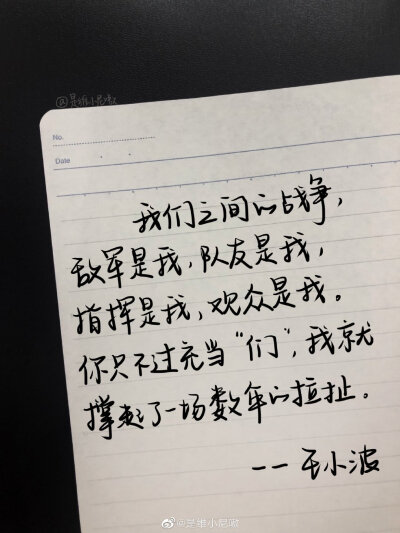 @是维小尼嗷
No.
Date
我们之间的战争，
敌军是我，队友是我，
指挥是我，观众是我。
你只不过充当“们”，我就
撑起了一场数年的拉扯。
——王小波
@是维小尼嗷